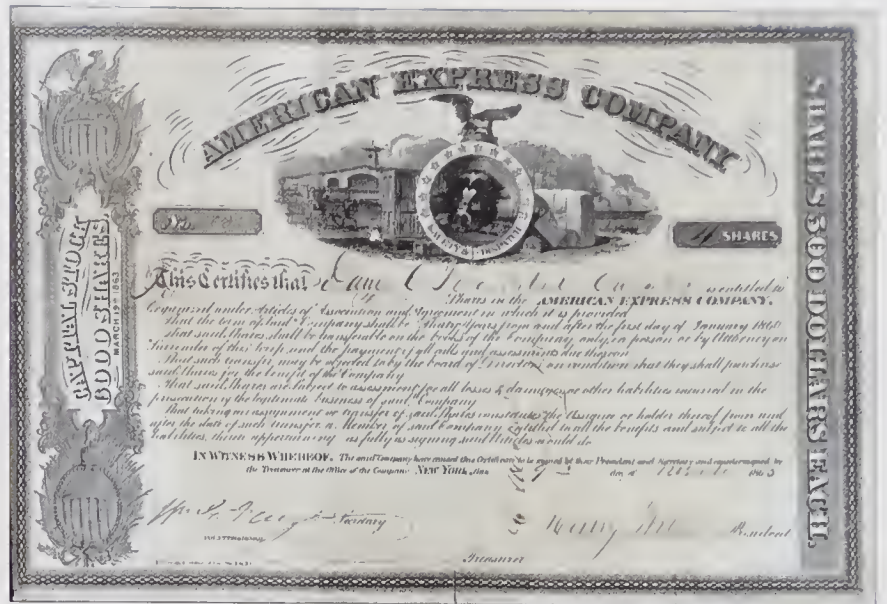 AMERICAN EXPRESS COMPANY
CAPITAL STOCK
6000 SHARES
MARCH 19th 1863
SHARES 500 DOLLARS EACH.
No.
SAFETY & DISPATCH
4 SHARES
This Certifies that is entitled to
Shares in the AMERICAN EXPRESS COMPANY,
Organized under Articles of Association and Agreement in which it is provided
That the term of said Company shall be Thirty Years from and after the first day of January 1860
That said Shares shall be transferable on the books of the Company only, in person or by Attorney on
surrender of this Scrip, and the payment of all calls and assessments due thereon
That such transfer may be objected to by the board of Directors on condition that they shall purchase
said Shares for the benefit of the Company
That said Shares are Subject to assessment for all losses & damages or other liabilities incurred in the
prosecution of the legitimate business of said Company
That taking an assignment or transfer of said Shares constitutes the Assignee or holder thereof from and
after the date of such transfer a Member of said Company entitled to all the benefits and subject to all the
liabilities, therein appertaining as fully as signing said Articles would do
IN WITNESS WHEREOF, The said Company have caused this Certificate to be signed by their President and Secretary and countersigned by
the Treasurer at the Office of the Company NEW YORK, this day of 1863
Secretary
Henry President
Treasurer